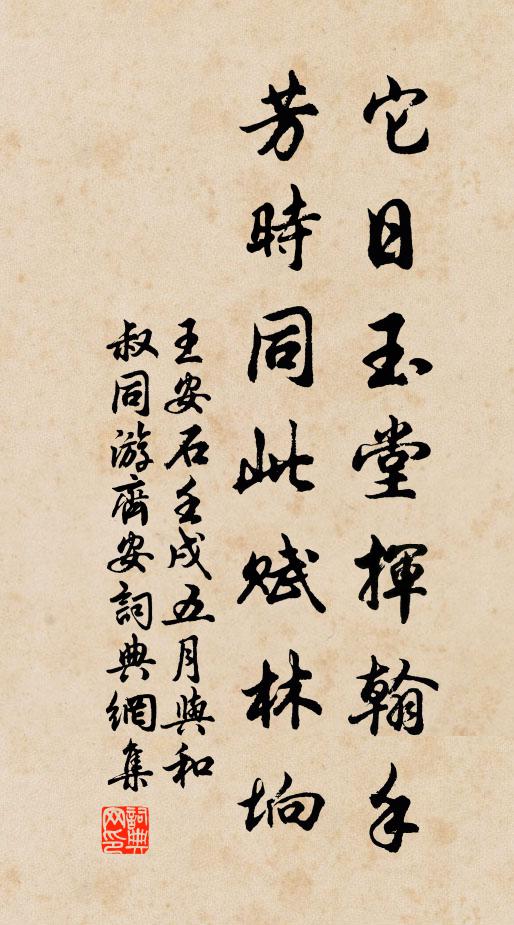 它日玉堂揮翰手
芳時同此賦林坰
王安石壬戌五月與和
叔同游齊安詞典網集
詞典网印